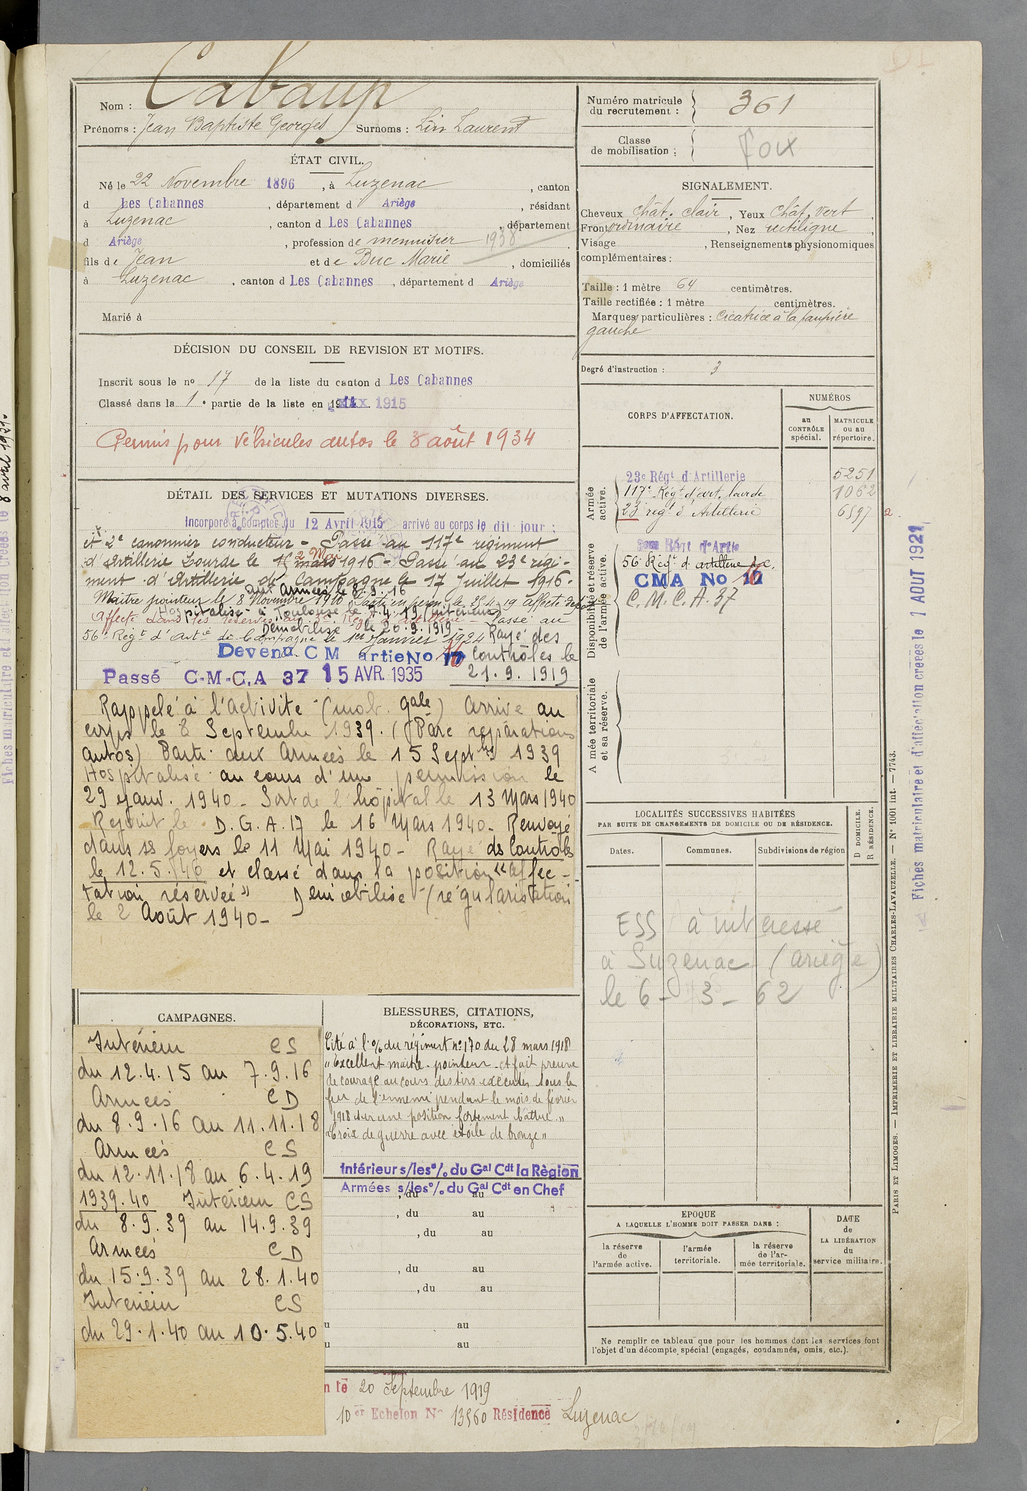 Nom : Cabaup
Prénoms : Jean Baptiste Georges Surnoms : Lin Laurent
ÉTAT CIVIL.
Né le 22 Novembre 1896, à Luzenac, canton
d Les Cabannes, département d Ariège, résidant
à Luzenac, canton d Les Cabannes, département
d Ariège, profession de menuisier 1938
fils de Jean et de Buc Marie, domiciliés
à Luzenac, canton d Les Cabannes, département d Ariège
Marié à
DÉCISION DU CONSEIL DE REVISION ET MOTIFS.
Inscrit sous le no 17 de la liste du canton d Les Cabannes
Classé dans la 1e partie de la liste en 1915
Permis pour véhicules autos le 8 août 1934
DÉTAIL DES SERVICES ET MUTATIONS DIVERSES.
Incorporé à compter du 12 Avril 1915 arrivé au corps le dit jour
et 2e canonnier conducteur - Passé au 117e régiment
d'Artillerie Lourde le 1er mars 1916 - Passé au 23e régi-
ment d'Artillerie de Campagne le 17 Juillet 1916.
aux Armées le 8.9.16
Maître pointeur le 3 Novembre 1916
Hospitalisé à Toulouse le 7.4.19 (intérieur)
Passé au
Démobilisé le 20.9.1919
56e Régt d'artie de Campagne le 1er Janvier 1924 Rayé des
Devenu C M artie No 17 Contrôles le
Passé C-M-C.A 37 15 AVR. 1935 21.9.1919
Rappelé à l'activité (mob. gale) Arrivé au
corps le 8 Septembre 1939. (Parc réparations
autos) Parti aux Armées le 15 Septbre 1939
Hospitalisé au cours d'une permission le
29 janv. 1940 - Sort de l'hôpital le 13 Mars 1940
Rejoint le D.G.A.17 le 16 Mars 1940 - Renvoyé
dans ses foyers le 11 Mai 1940 - Rayé des Contrôles
le 12.5.40 et classé dans la position "affec-
tation réservée" Démobilisé (régularisation)
le 2 Août 1940 -
CAMPAGNES.
Intérieur CS
du 12.4.15 au 7.9.16
Armées CD
du 8.9.16 au 11.11.18
Armées CS
du 12.11.18 au 6.4.19
1939.40 Intérieur CS
du 8.9.39 au 14.9.39
Armées CD
du 15.9.39 au 28.1.40
Intérieur CS
du 29.1.40 au 10.5.40
BLESSURES, CITATIONS,
DÉCORATIONS, ETC.
Cité à l'o/ du régiment no 170 du 28 mars 1918
"Excellent maître-pointeur - a fait preuve
de courage au cours des tirs exécutés sous le
feu de l'ennemi pendant le mois de février
1918 sur une position fortement battue"
"Croix de guerre avec étoile de bronze"
Intérieur s/les o/. du Gal Cdt la Région
Armées s/les o/. du Gal Cdt en Chef
, du au
, du au
, du au
, du au
, du au
u au
u au
n le 20 Septembre 1919
10er Echelon No 13960 Résidence Luzenac
Numéro matricule
du recrutement : 361
Classe
de mobilisation : Foix
SIGNALEMENT.
Cheveux chât. clair, Yeux chât. vert,
Front ordinaire, Nez rectiligne,
Visage , Renseignements physionomiques
complémentaires :
Taille : 1 mètre 64 centimètres.
Taille rectifiée : 1 mètre centimètres.
Marques particulières : cicatrice à la paupière
gauche
Degré d'instruction : 3
CORPS D'AFFECTATION.
NUMÉROS
au
CONTRÔLE
spécial.
MATRICULE
ou au
répertoire.
Armée
active.
23e Régt d'Artillerie 5251
117e Régt d'art. lourde 1062
23 régt d'Artillerie 6597
Disponibilité et réserve
de l'armée active.
56e Régt d'artillerie
CMA No 17
C.M.C.A. 37
Armée territoriale
et sa réserve.
LOCALITÉS SUCCESSIVES HABITÉES
PAR SUITE DE CHANGEMENTS DE DOMICILE OU DE RÉSIDENCE.
Dates. Communes. Subdivisions de région
D DOMICILE.
R RÉSIDENCE.
ESS à intéressé
à Luzenac (ariège)
le 6 - 3 - 62
EPOQUE
A LAQUELLE L'HOMME DOIT PASSER DANS :
la réserve
de
l'armée active.
l'armée
territoriale.
la réserve
de l'ar-
mée territoriale.
DATE
de
LA LIBÉRATION
du
service militaire.
Ne remplir ce tableau que pour les hommes dont les services font
l'objet d'un décompte spécial (engagés, condamnés, omis, etc.).
PARIS ET LIMOGES. — IMPRIMERIE ET LIBRAIRIE MILITAIRES CHARLES-LAVAUZELLE. — No 1001 int. — 7743.
Fiches matriculaire et d'affectation créées le 1 AOUT 1921